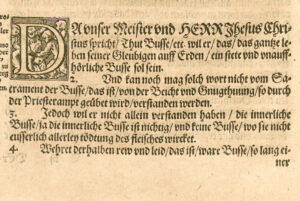 DA vnser Meister vnd HERR Jhesus Chri-
stus spricht/ Thut Busse/ etc. wil er/ das/ das gantze le-
ben seiner Gleubigen auff Erden/ ein stete vnd vnauff-
hörliche Busse sol sein.
2. Vnd kan noch mag solch wort nicht vom Sa-
crament der Busse/ das ist/ von der Beicht vnd Gnugthuung/ so durch
der Priesterampt geübet wird/ verstanden werden.
3. Jedoch wil er nicht allein verstanden haben/ die innerliche
Busse/ ja die innerliche Busse ist nichtig/ vnd keine Busse/ wo sie nicht
eusserlich allerley tödtung des fleisches wircket.
4. Wehret derhalben rew vnd leid/ das ist/ ware Busse/ so lang ei-
ner